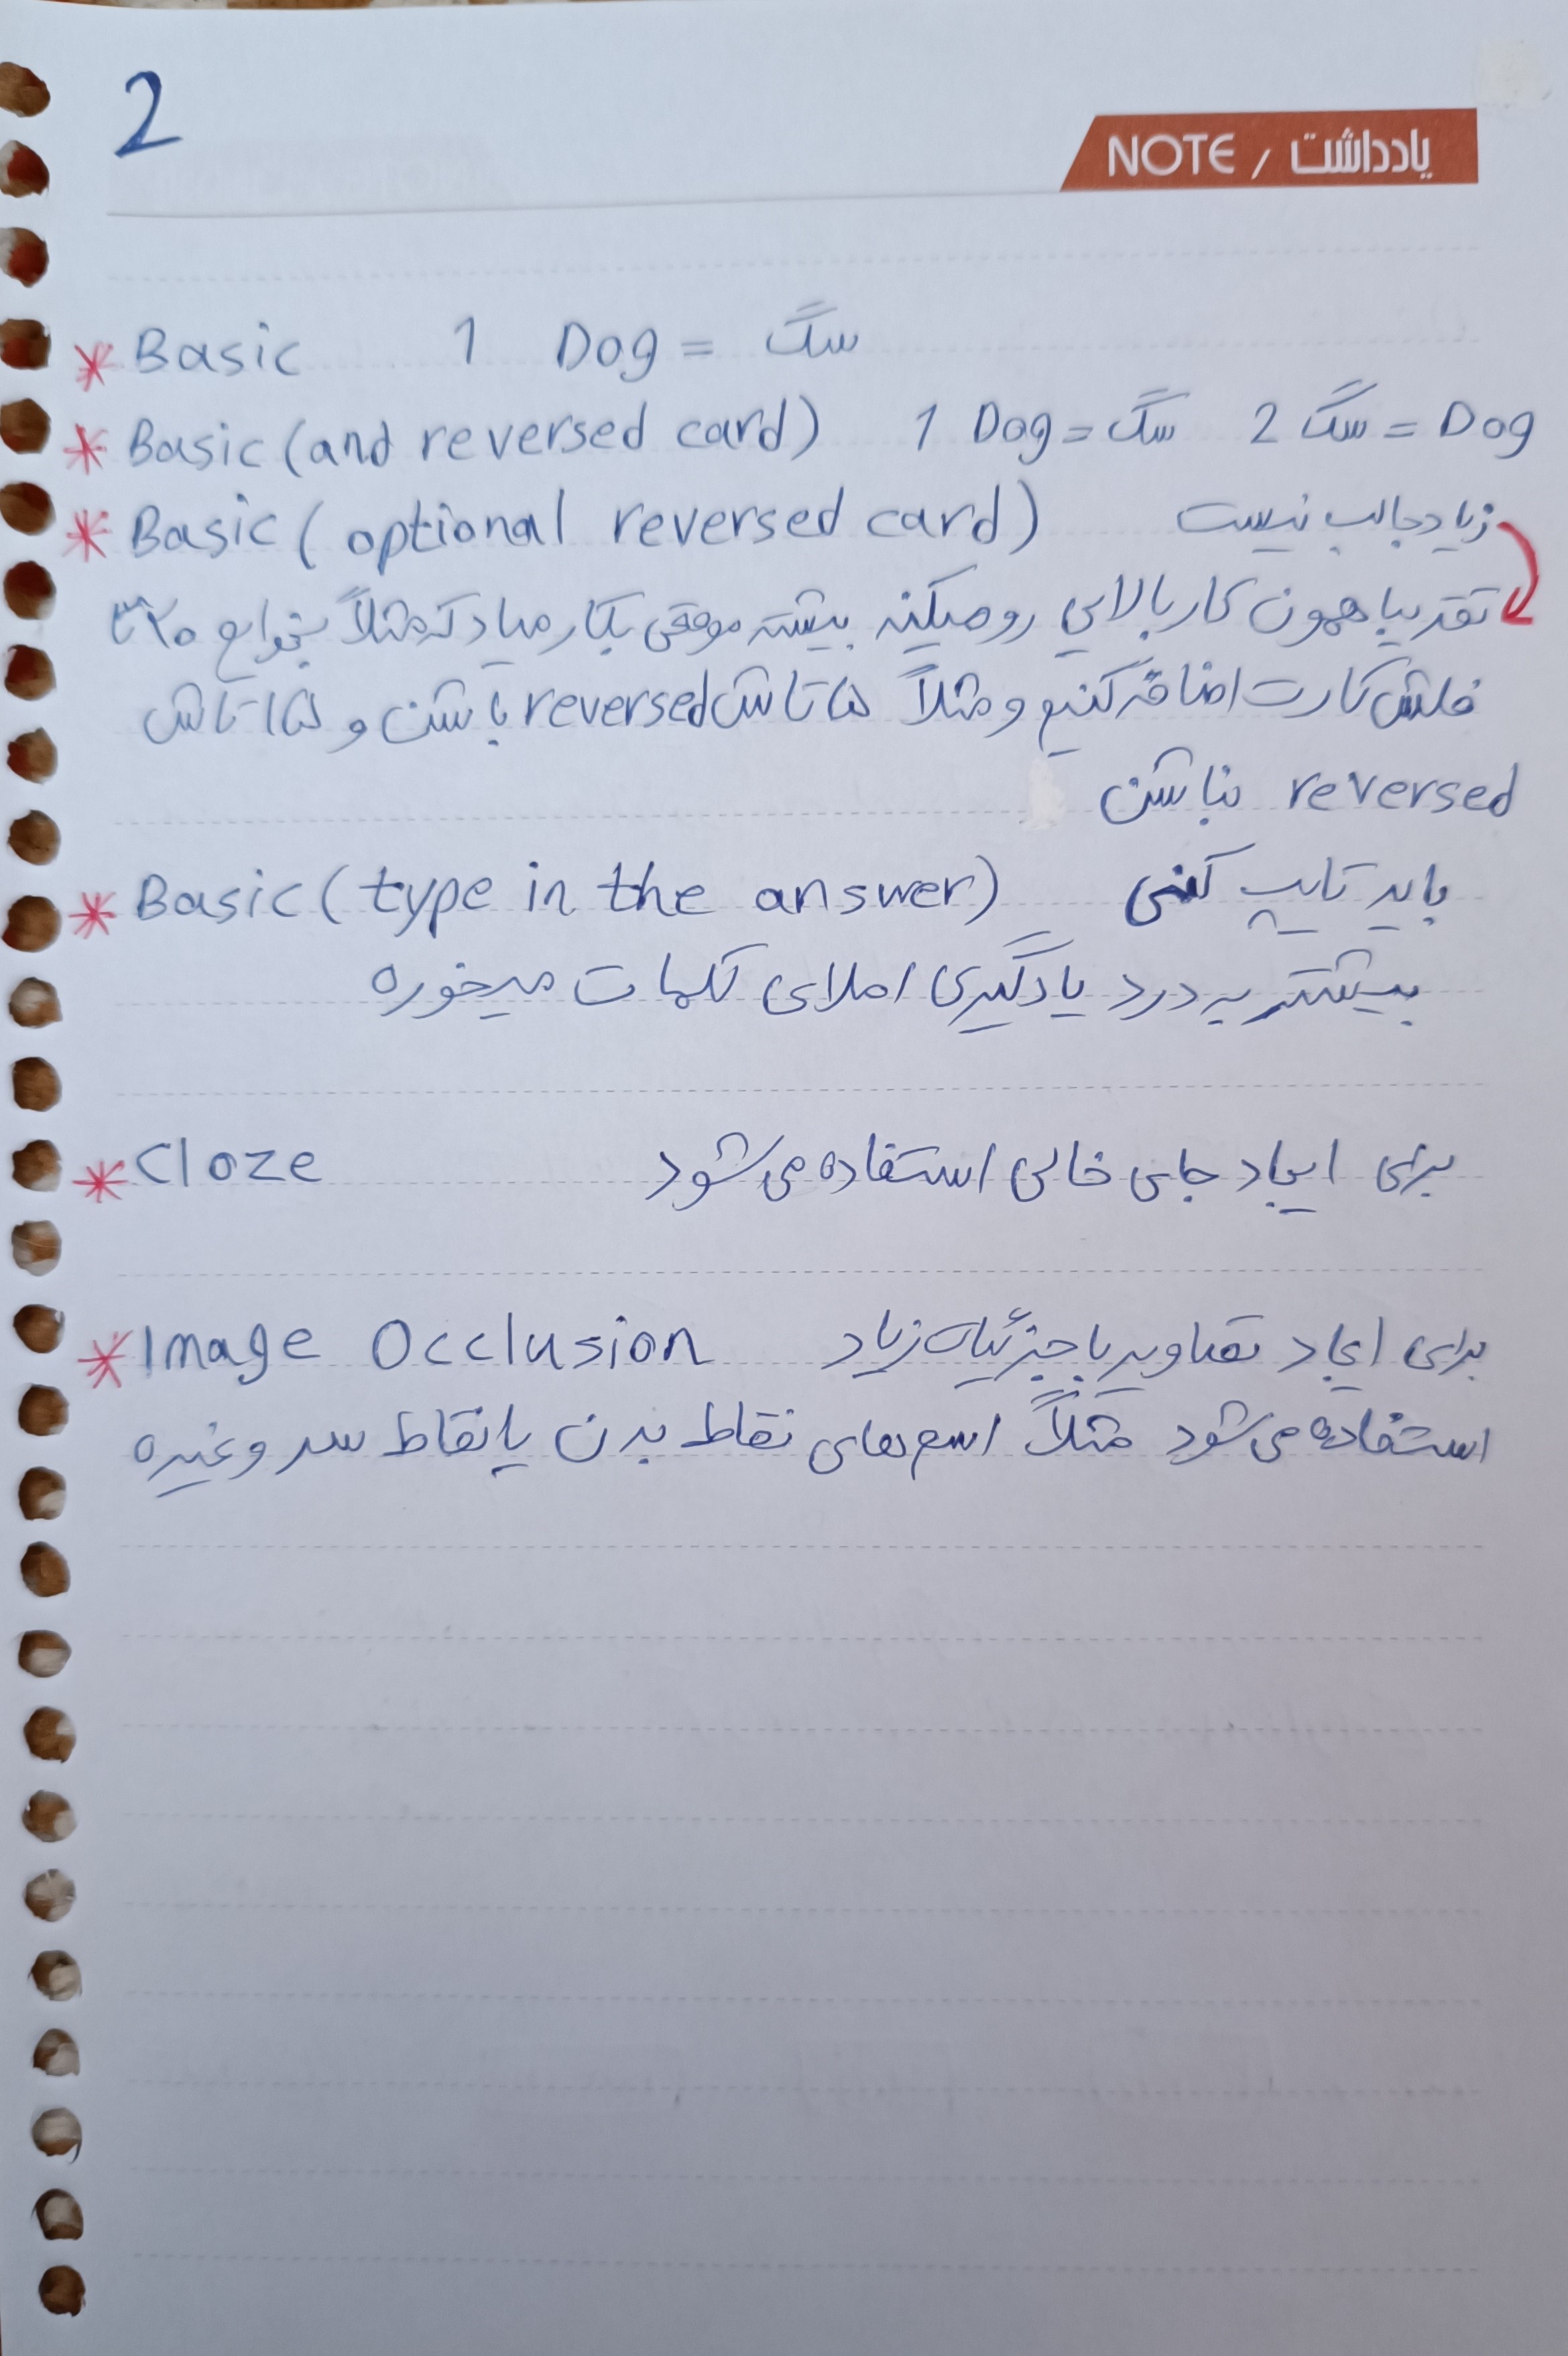 2
NOTE / یادداشت
* Basic 1 Dog = سگ
* Basic (and reversed card) 1 Dog = سگ 2 سگ = Dog
* Basic ( optional reversed card) زیاد جالب نیست
تقریبا همون کار بالایی رو میکنه بیشتر موقعی بکار میاد که مثلاً بخوایم ۲۰ تا
فلش کارت اضافه کنیم و مثلاً ۵ تاش reversed باشن و ۱۵ تاش
reversed نباشن
* Basic ( type in the answer) باید تایپ کنی
بیشتر به درد یادگیری املای کلمات میخوره
* Cloze برای ایجاد جای خالی استفاده می شود
* Image Occlusion برای ایجاد تصاویر با جزئیات زیاد
استفاده می شود مثلاً اسم های نقاط بدن یا نقاط سر و غیره